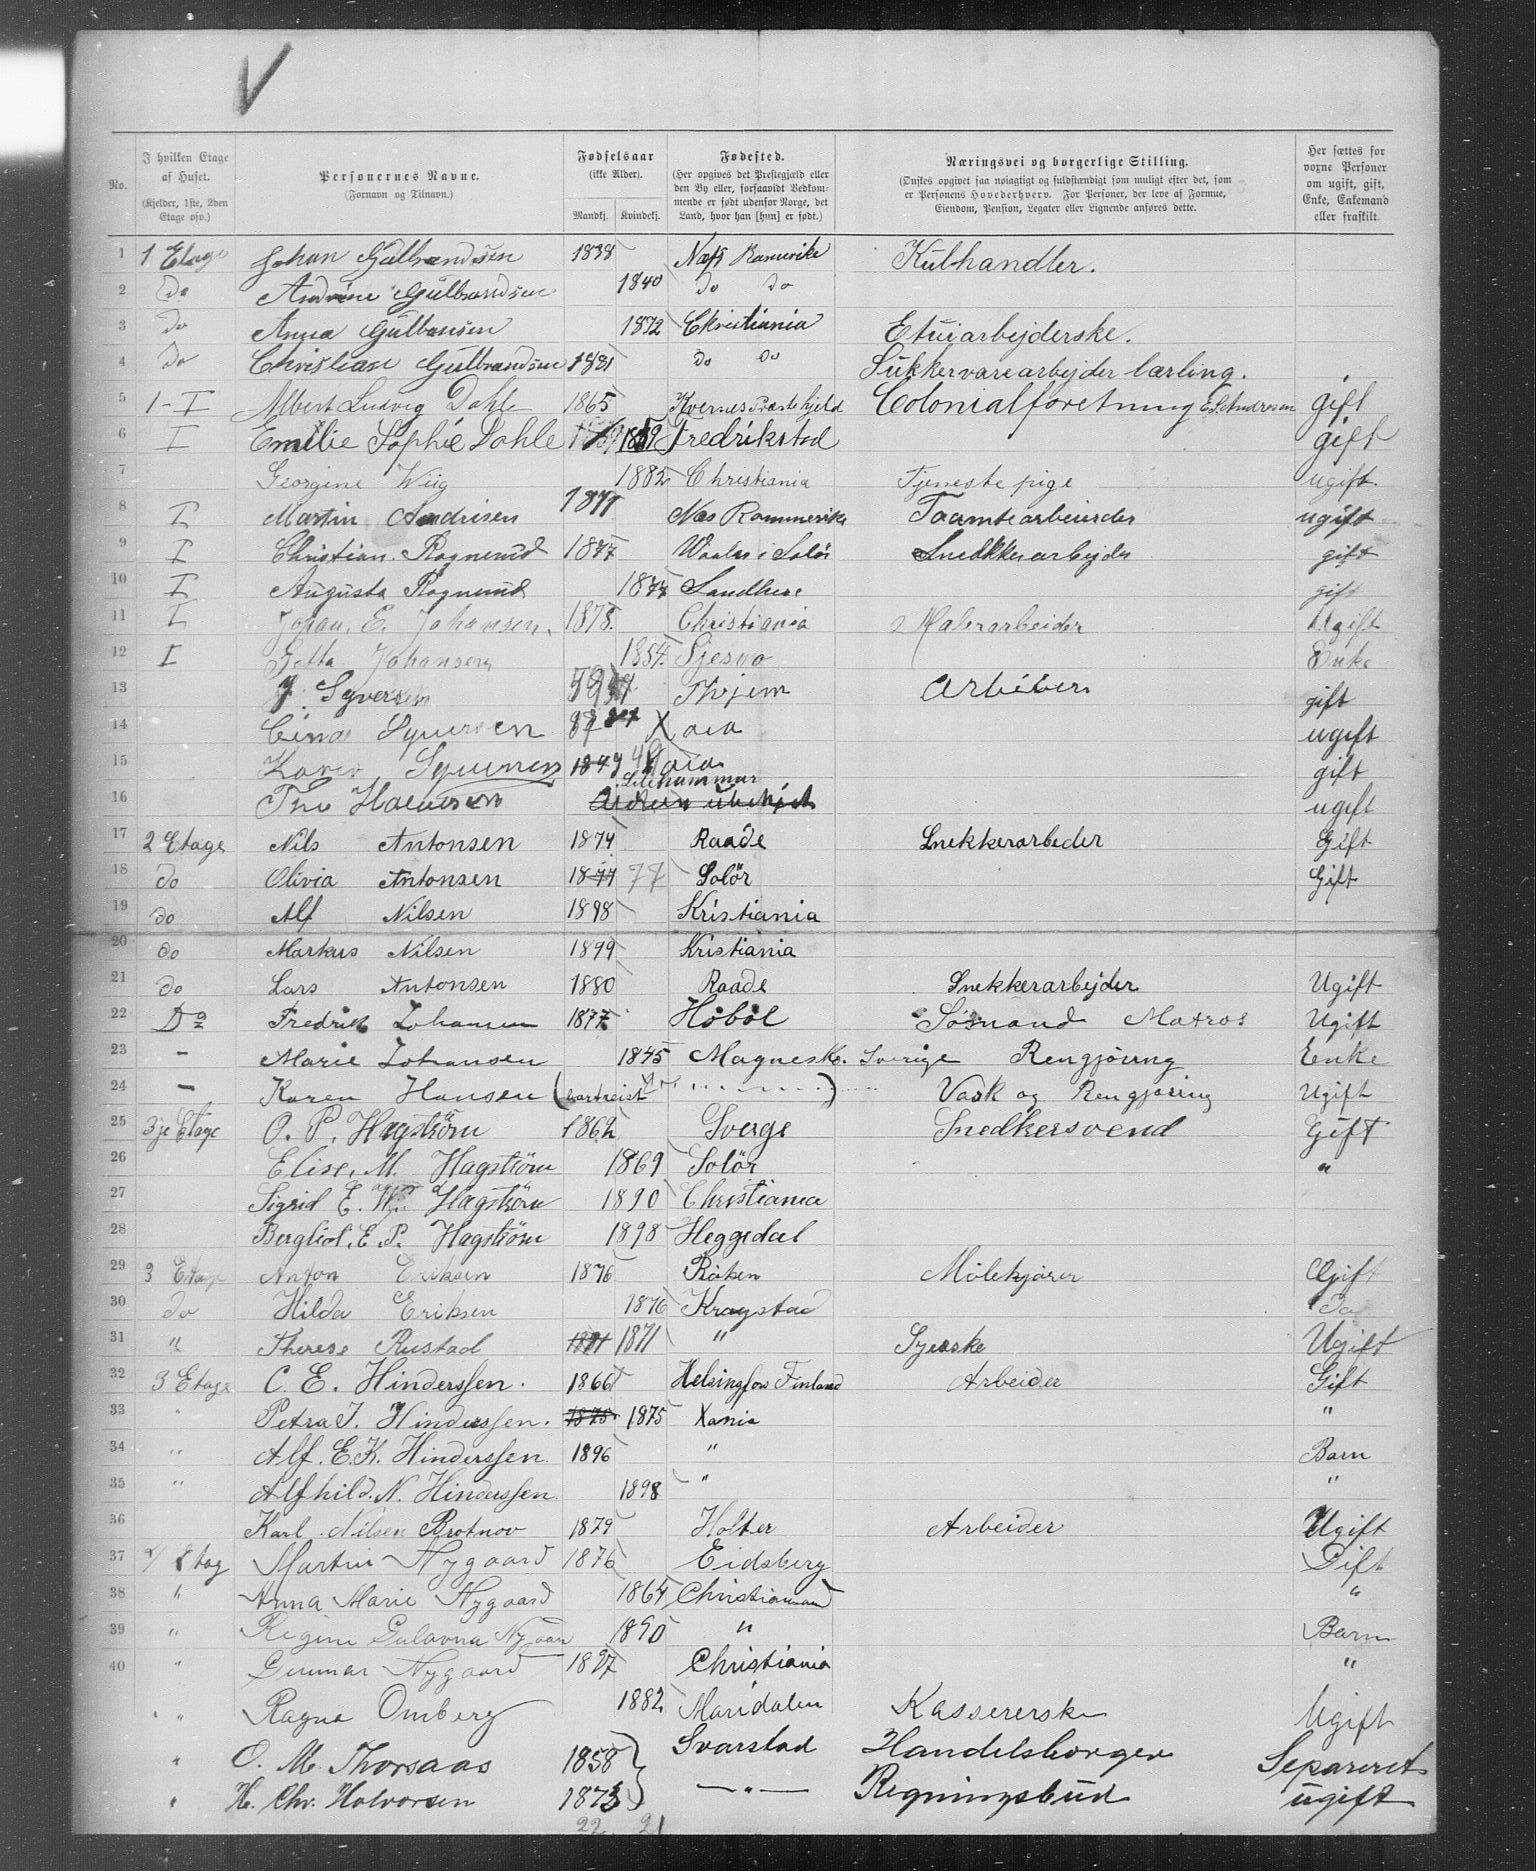 V
No. I hvilken Etage af Huset. (Kjelder, 1ste, 2den Etage osv.) Personernes Navne. (Fornavn og Tilnavn.) Fødselsaar (ikke Alder). Mandkj. Kvindekj. Fødested. (Her opgives det Præstegjæld eller den By eller, forsaavidt Vedkommende er født udenfor Norge, det Land, hvor han [hun] er født.) Næringsvei og borgerlige Stilling. (Ønskes opgivet saa nøiagtigt og fuldstændigt som muligt efter det, som er Personens Hovederhverv. For Personer, der leve af Formue, Eiendom, Pension, Legater eller Lignende anføres dette.) Her sættes for voxne Personer om ugift, gift, Enke, Enkemand eller fraskilt.
1 1 Etage Johan Gulbrandsen 1838 Næs Romerike Kulhandler.
2 do Andrine Gulbrandsen 1840 do do
3 do Anna Gulbransen 1872 Christiania Etuiarbejderske.
4 do Christian Gulbrandsen 1881 do do Sukkervarearbejder lærling.
5 1-I Albert Ludvig Dahle 1865 Kvernes Præstehjeld Colonialforetning E. S. Andresen gift
6 I Emilie Sophie Dahle 1859 Fredrikstad gift
7 Georgine Wiig 1882 Christiania Tjenestepige ugift.
8 I Martin Andrisen 1871 Næs Rommerike ugift
9 I Christian Rognerud 1877 Vaaler i Solör Snedkkerarbejder gift
10 I Augusta Rognerud 1877 gift
11 I Johan. E. Johansen. 1878. Christiania Malerarbeider Ugift
12 I Johansen 1854. Enke
13 J. Syversen gift
14 Syversen Xania ugift
15 Karen 1849 gift
16 Lillehammer ugift
17 2 Etage Nils Antonsen 1874 Raade Snekkerarbeder Gift
18 do Olivia Antonsen 1877 77 Solör Gift
19 do Alf Nilsen 1898 Kristiania
20 do Markus Nilsen 1899 Kristiania
21 do Lars Antonsen 1880 Raade Snekkerarbejder Ugift
22 Do Fredrik Johansen 1877 Høbøl Sømand Matros Ugift
23 - Marie Johansen 1845 Magnesk. Sverige Rengjøring Enke
24 - Karen Hansen (bortreist) Vask og Rengjøring Ugift
25 3je Etage O. P. Hagström 1862 Sverge Snedkersvend Gift
26 Elise. M. Hagström 1869 Solör "
27 Sigrid E. Hagström 1890 Christiania
28 Bergliot. E. P. Hagström 1898 Heggedal
29 3 Etage Anton Eriksen 1876 Røken Mølekjører Gift
30 do Hilda Eriksen 1876 Kragstad Do
31 " Therese Rustad 1871 1871 " Syerske Ugift
32 3 Etage C. E. Hinderssen. 1866 Helsingfors Finland Arbeider Gift
33 " Petra J. Hinderssen. 1875 1875 Xania "
34 " Alf. E. K. Hinderssen. 1896 " Barn
35 " Alfhild. N. Hinderssen. 1898 " "
36 Karl Nilsen Brotnov 1879 Holter Arbeider Ugift
37 4 Etag Martin Nygaard 1876 Eidsberg Gift
38 " Anna Marie Nygaard 1864 Christiansand "
39 " Regine Gulavna Nygaard 1890 " Barn
40 " Gunnar Nygaard 1897 Christiania "
" Ragna Omberg 1882 Maridalen Kassererske Ugift
" O. M. Thorsaas 1858 Svarstad Handelsborger Separeret
" H. Chr. Halvorsen 1873 " Regningsbud ugift
22 21